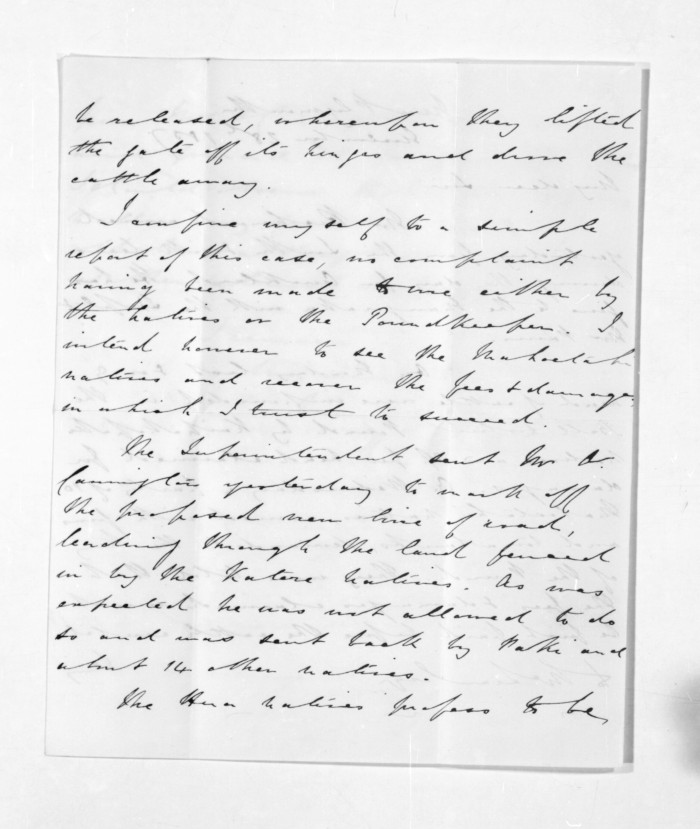 be released, whereupon they lifted
the gate off its hinges and drove the
cattle away.
I confine myself to a simple
report of this case, no complaint
having been made to me either by
the natives or the Poundkeeper. I
intend however to see the
natives and recover the fees & damages
in which I trust to succeed.
The Superintendent sent Mr O.
Carrington yesterday to mark off
the proposed new line of road,
leading through the land fenced
in by the Katere natives. As was
expected he was not allowed to do
so and was sent back by and
about 14 other natives.
The Hua natives profess to be